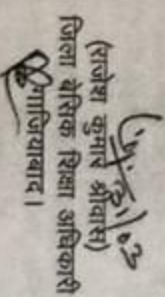 (राजेश कुमार श्रीवास)
जिला बेसिक शिक्षा अधिकारी
गाजियाबाद।